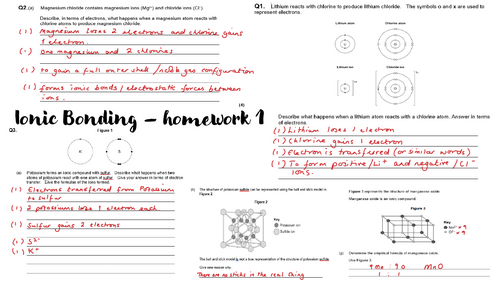 Q2.(a) Magnesium chloride contains magnesium ions (Mg²⁺) and chloride ions (Cl⁻).
Describe, in terms of electrons, what happens when a magnesium atom reacts with
chlorine atoms to produce magnesium chloride.
(1) Magnesium loses 2 electrons and chlorine gains
1 electron.
(1) One magnesium and 2 chlorines
(1) to gain a full outer shell / noble gas configuration
(1) forms ionic bonds / electrostatic forces between
ions.
(4)
Q1. Lithium reacts with chlorine to produce lithium chloride. The symbols o and x are used to
represent electrons.
Lithium atom
Chlorine atom
Lithium ion
Chloride ion
Describe what happens when a lithium atom reacts with a chlorine atom. Answer in terms
of electrons.
(1) Lithium loses 1 electron
(1) Chlorine gains 1 electron
(1) Electron is transferred (or similar words)
(1) To form positive/Li⁺ and negative/Cl⁻
ions.
Ionic Bonding - homework 1
Q3.
Figure 1
K
S
(a) Potassium forms an ionic compound with sulfur. Describe what happens when two
atoms of potassium react with one atom of sulfur. Give your answer in terms of electron
transfer. Give the formulae of the ions formed.
(1) Electrons transferred from Potassium
to sulfur
(1) 2 potassiums lose 1 electron each
(1) Sulfur gains 2 electrons
(1) S²⁻
(1) K⁺
The structure of potassium sulfide can be represented using the ball and stick model in
Figure 2.
Figure 2
Key
Potassium ion
Sulfide ion
The ball and stick model is not a true representation of the structure of potassium sulfide.
Give one reason why.
There are no sticks in the real thing
Figure 3 represents the structure of manganese oxide.
Manganese oxide is an ionic compound.
Figure 3
Key
(g) Determine the empirical formula of manganese oxide.
Use Figure 3.
9 Mn : 9 O MnO
1 : 1